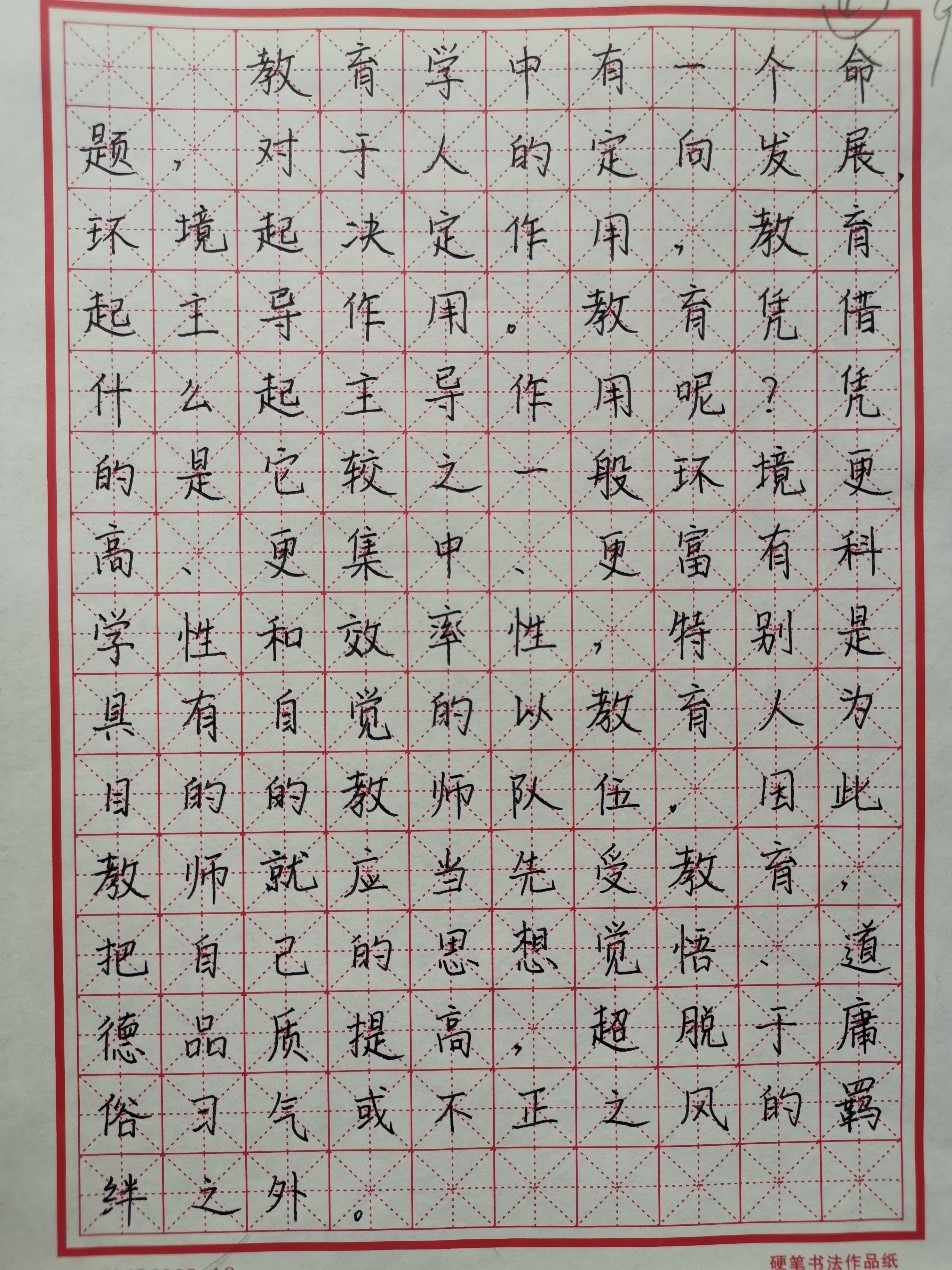 教育学中有一个命
题，对于人的定向发展，
环境起决定作用，教育
起主导作用。教育凭借
什么起主导作用呢？凭
的是它较之一般环境更
高、更集中、更富有科
学性和效率性，特别是
具有自觉的以教育人为
目的的教师队伍。因此
教师就应当先受教育，
把自己的思想觉悟、道
德品质提高，超脱于庸
俗习气或不正之风的羁
绊之外。
硬笔书法作品纸